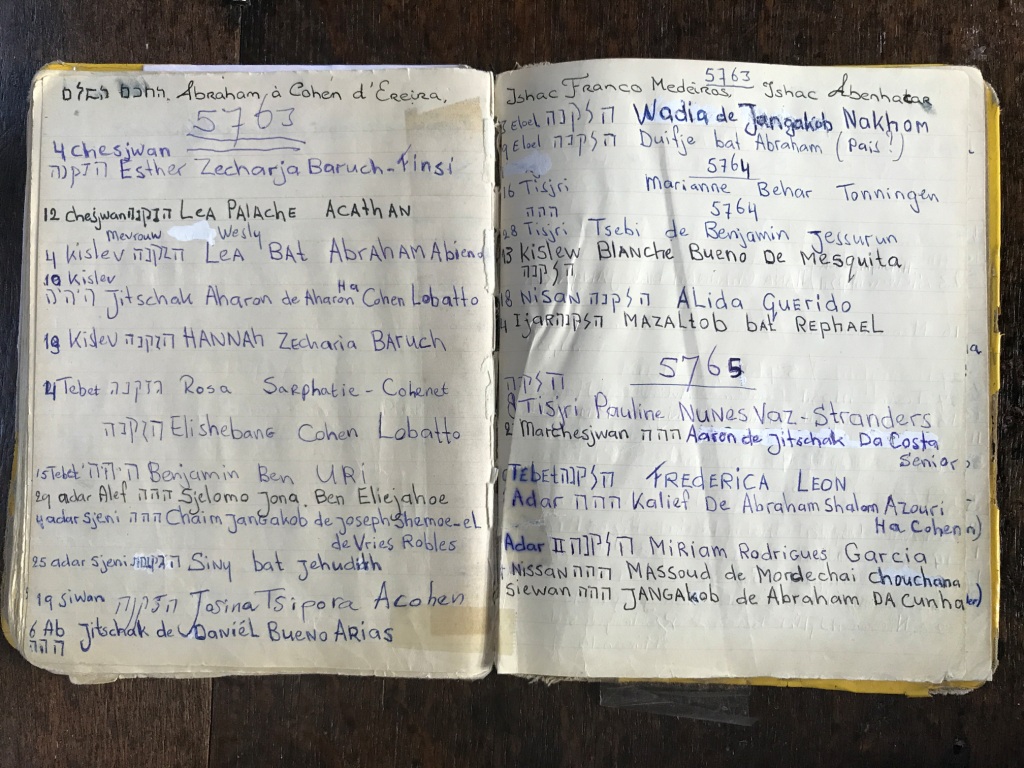 החכם השלם. Abraham, à Cohen d'Ereira,
5763
4 Chesjwan
הזקנה Esther Zecharja Baruch-Finsi
12 Chesjwan הזקנה LEA PALACHE ACATHAN
Mevrouw Wesly
4 Kislev הזקנה LEA BAT ABRAHAM Abiend
10 Kislev
היהיה Jitschak Aharon de Aharon Ha Cohen Lobatto
19 Kislev הזקנה HANNAH Zecharia BARUCH
4 Tebet הזקנה Rosa Sarphatie-Cohenet
הזקנה Elishebang Cohen Lobatto
15 Tebet היהה Benjamin Ben URI
29 adar Alef ההה Sjelomo Jona Ben Eliejahoe
4 adar Sjeni ההה Chaim Jangakob de Joseph Shemoe-el
de Vries Robles
25 adar Sjeni הזקנה SINY bat Jehudith
19 Siwan הזקנה Josina Tsipora Acohen
6 Ab Jitschak de Daniél BUENO ARIAS
ההה
5763
Ishac Franco Medeiros, Ishac Abenhatar
Eloel הזקנה Wadia de Jangakob Nakhom
9 Eloel הזקנה Duifje bat Abraham (Pais!)
5764
16 Tisjri Marianne Behar Tonningen
ההה
5764
28 Tisjri Tsebi de Benjamin Jessurun
13 Kislew BLANCHE BUENO DE MESQUITA
הזקנה
18 NISAN הזקנה ALida Querido
Ijar הזקנה MAZALTOB bat REPHAEL
5765
הזקנה
8 Tisjri Pauline NUNES VAZ-Stranders
2 Marchesjwan ההה Aaron de Jitschak DA Costa
Senior
Tebet הזקנה FREDERICA LEON
Adar ההה Kalief De Abraham Shalom Azouri
Ha Cohen
Adar II הזקנה Miriam Rodrigues Garcia
Nissan ההה MAssoud de Mordechai Chouchana
Siewan ההה JANGAkob de Abraham DA Cunha